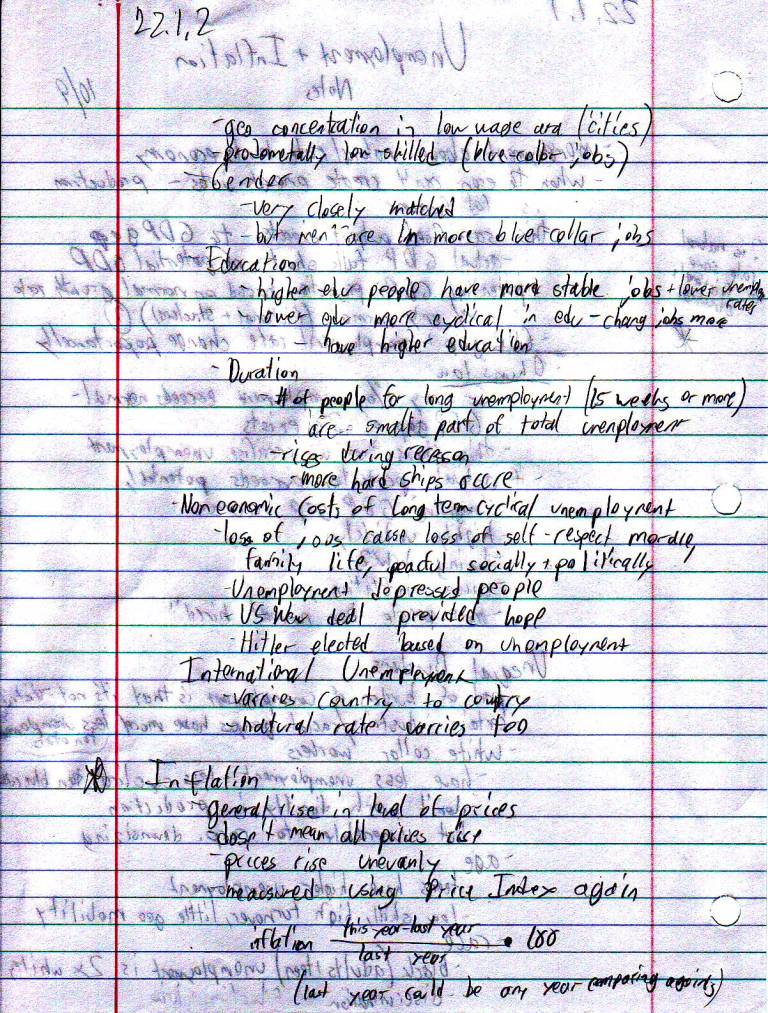 22.1,2
-geo concentration in low wage area (cities)
-prodometally low skilled (blue-collar jobs)
-Gender
-very closely matched
-but men are in more blue-collar jobs
Education
-higher edu people have more stable jobs + lower unemploy rates
-lower edu more cyclical in edu-chang jobs more
-have higher education
-Duration
# of people for long unemployment (15 weeks or more)
are small part of total unemployment
-rises during recesson
-more hard ships occre
-Non economic costs of long term cyclical unemployment
-loss of jobs cause loss of self-respect morale,
family life, socially + politically
-Unemployment depressed people
-US New deal provided hope
-Hitler elected based on unemployment
International Unemployment
-varries country to country
-natural rate varries too
Inflation
-general rise in level of prices
-dose't mean all prices rise
-prices rise unevanly
-measured using Price Index again
inflation this year-last year
last year • 100
(last year could be any year comparing againts)